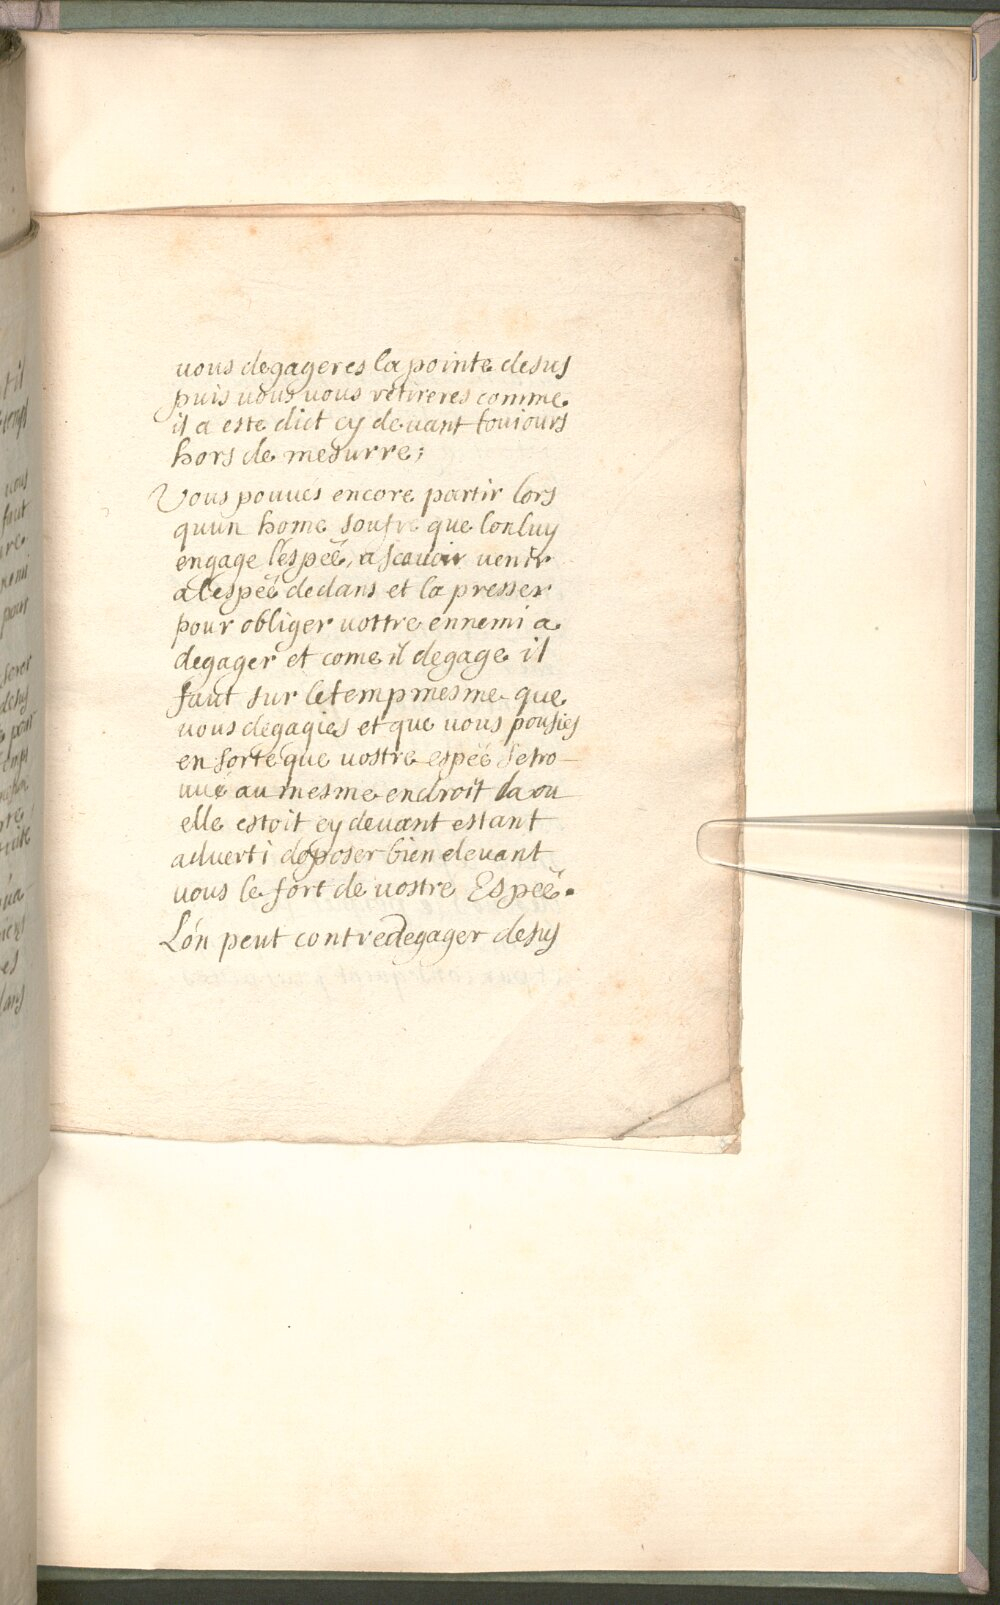 vous degageres la pointe desus
puis vous vous retireres comme
il a este dict cy devant toujours
hors de mesurre;
Vous pouués encore partir lors
quun home soufre que lonluy
engage l'espeé, a scauoir venir
a l'espeé dedans et la presser
pour obliger vottre ennemi a
degager et come il degage il
faut sur le temp mesme que
vous degagies et que vous pousies
en sorte que vostre espeé se tro-
uué au mesme endroit la ou
elle estoit cy devant estant
adverti doposer bien devant
vous le fort de vostre Espeé.
Lón peut contredegager desus